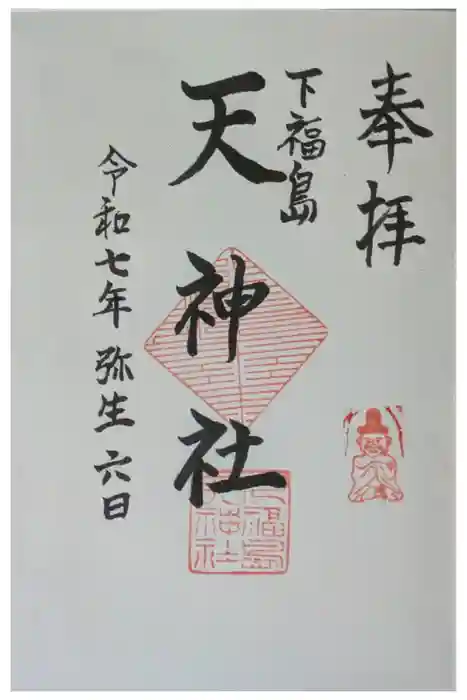 奉拝
下福島
天神社
令和七年 弥生 六日
下福島
天神社